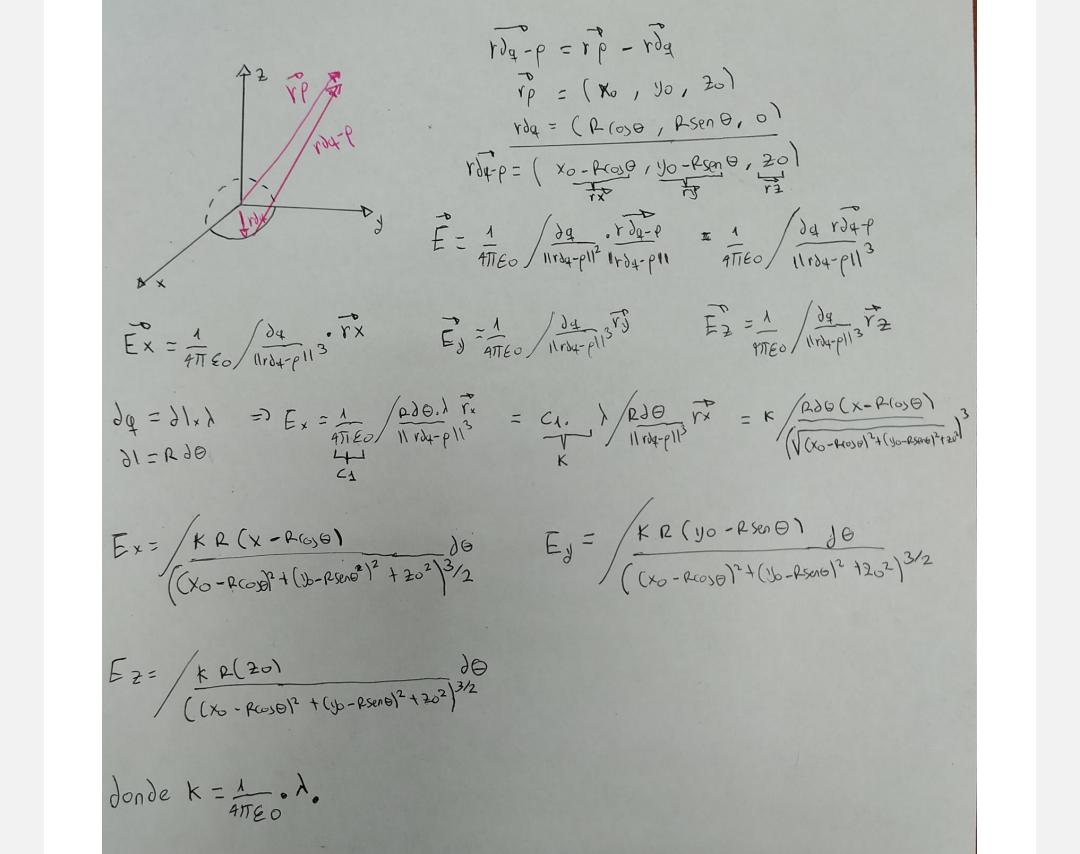 z
rp
rdq-p
rdq
y
x
rdq-p = rp - rdq
rp = (x0, y0, z0)
rdq = (Rcosθ, Rsenθ, 0)
rdq-p = (x0-Rcosθ, y0-Rsenθ, z0)
rx ry rz
E = 1/4πε0 ∫ dq/||rdq-p||² · rdq-p/||rdq-p|| = 1/4πε0 ∫ dq rdq-p/||rdq-p||³
Ex = 1/4πε0 ∫ dq/||rdq-p||³ · rx Ey = 1/4πε0 ∫ dq/||rdq-p||³ ry Ez = 1/4πε0 ∫ dq/||rdq-p||³ rz
dq = dl×λ => Ex = 1/4πε0 ∫ Rdθ.λ rx/||rdq-p||³ = C1. λ ∫ Rdθ/||rdq-p||³ rx = K ∫ Rdθ(x-Rcosθ)/(√(x0-Rcosθ)²+(y0-Rsenθ)²+z0²)³
dl = R dθ
C1
K
Ex = ∫ K R (x-Rcosθ)/((x0-Rcosθ)²+(y0-Rsenθ²)²+z0²)^3/2 dθ Ey = ∫ K R (y0-Rsenθ) dθ/((x0-Rcosθ)²+(y0-Rsenθ)²+z0²)^3/2
Ez = ∫ K R(z0)/((x0-Rcosθ)²+(y0-Rsenθ)²+z0²)^3/2 dθ
donde K = 1/4πε0 · λ.